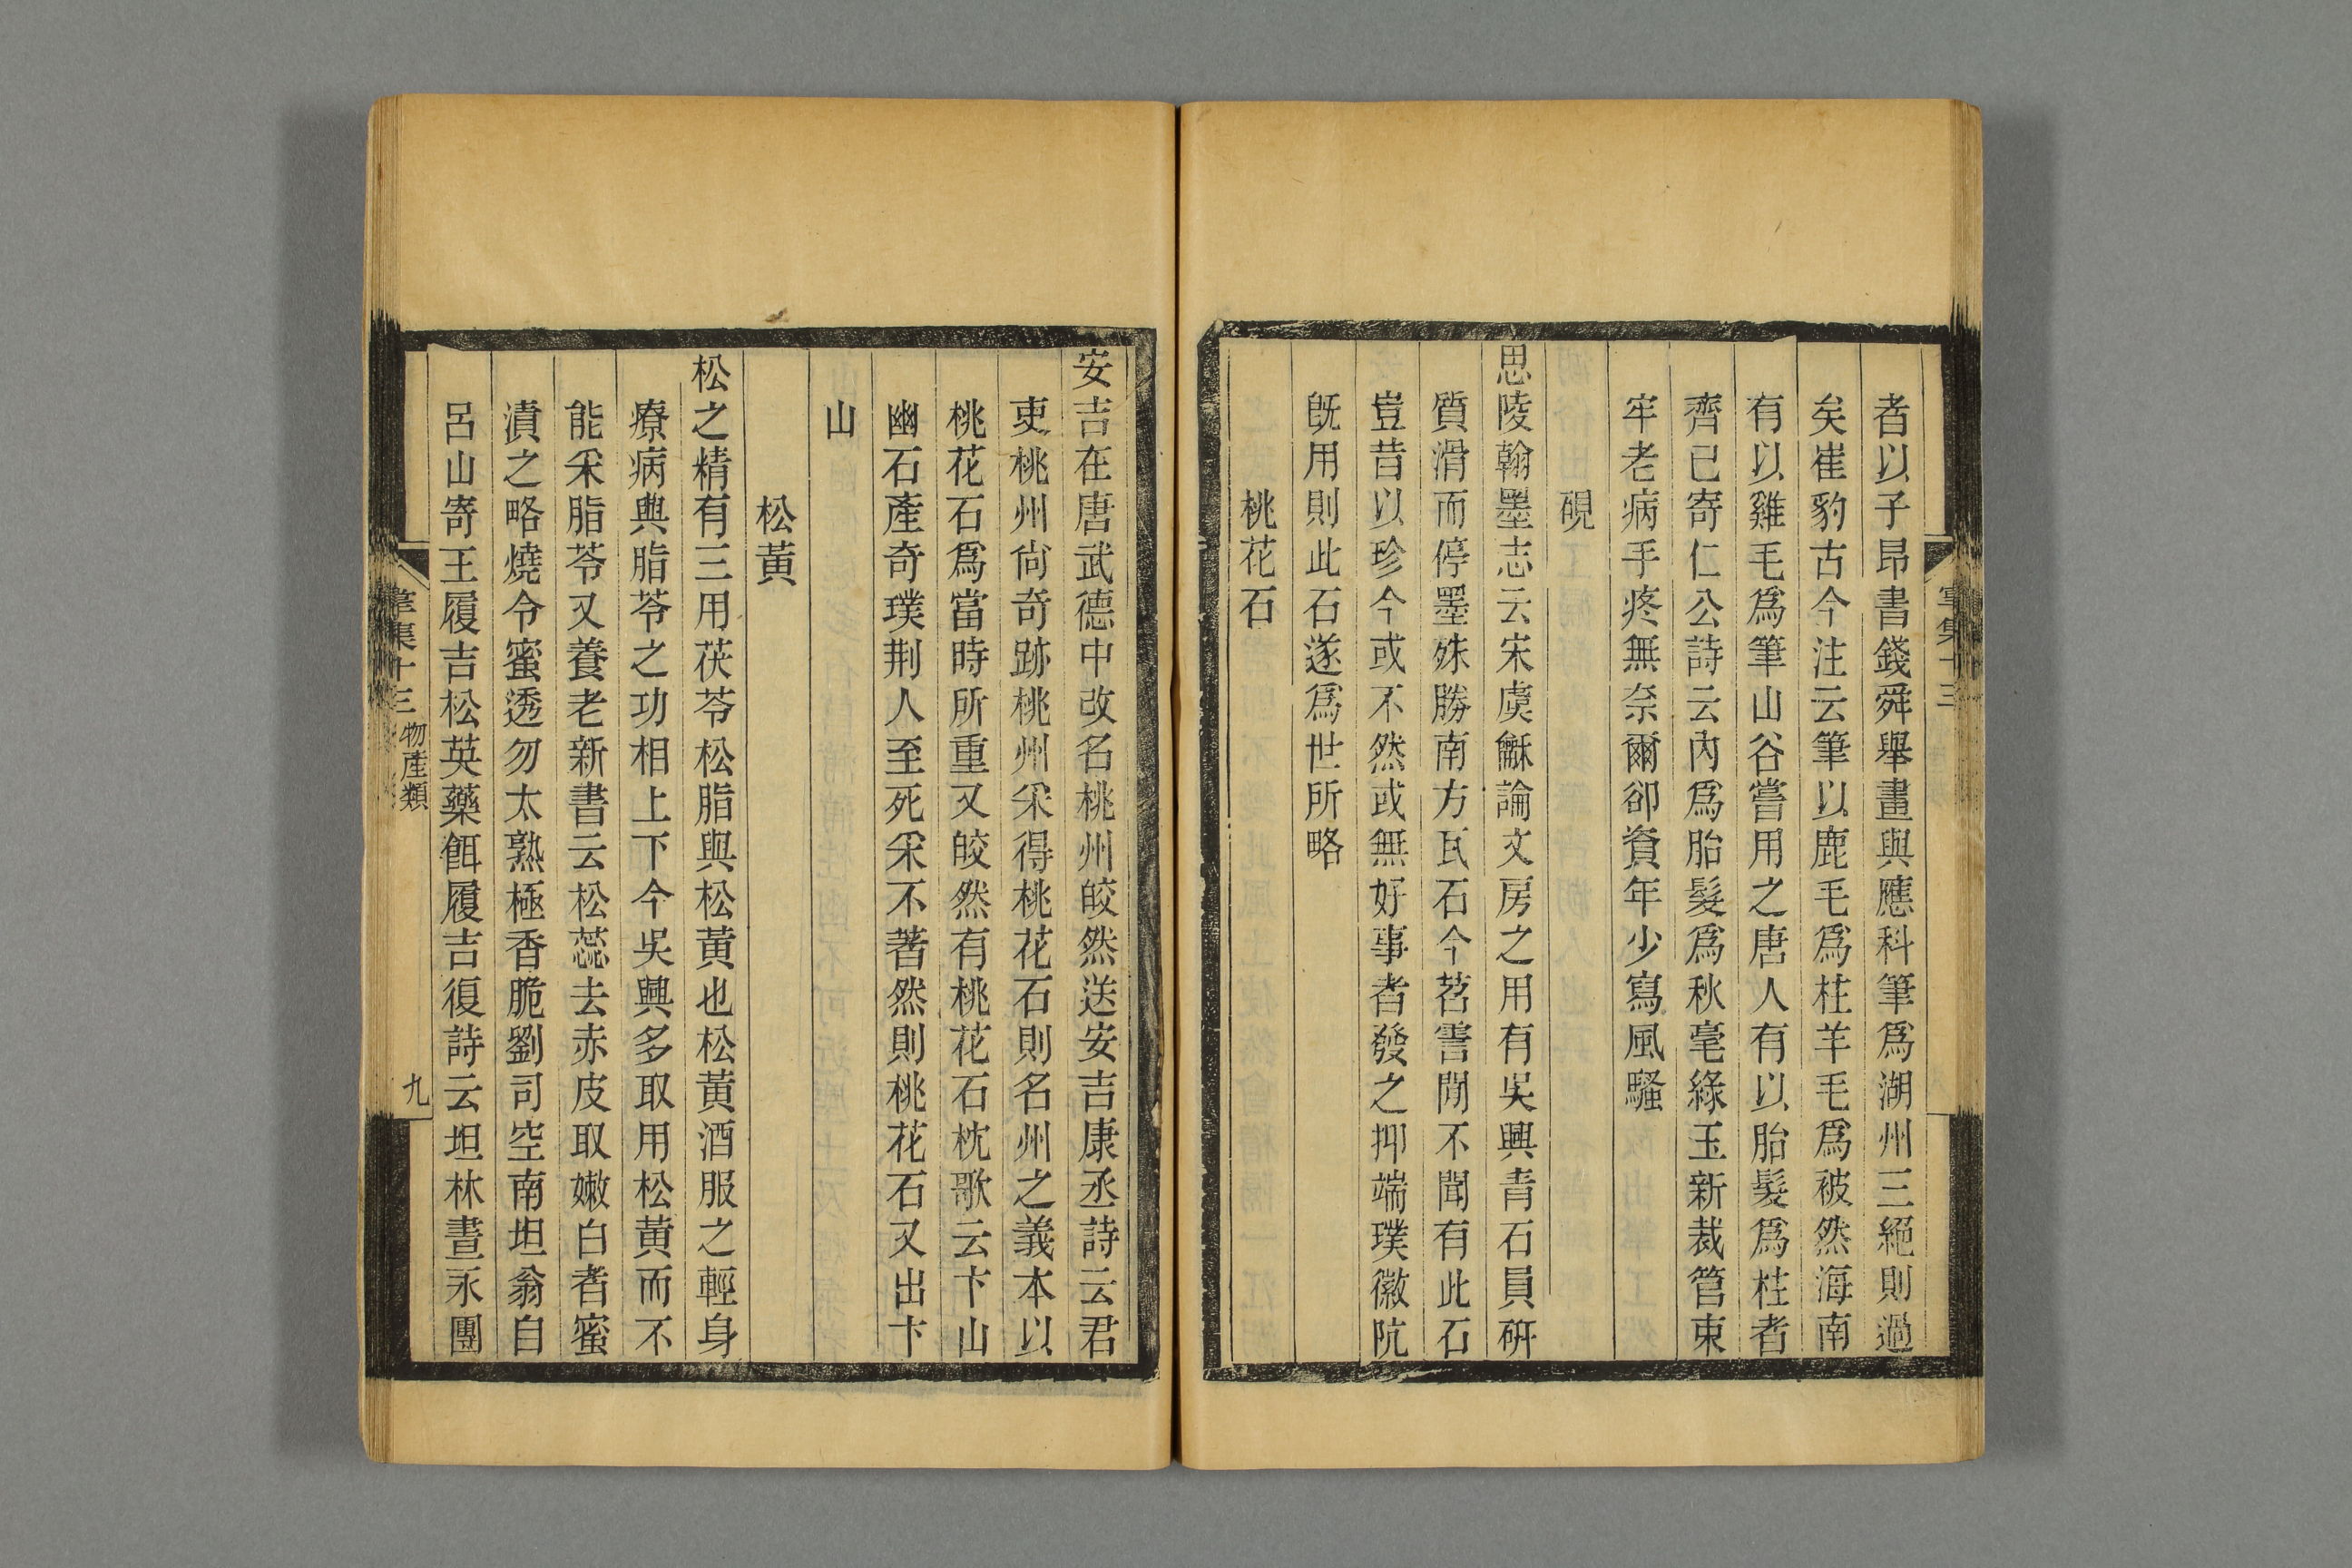 者以子昂書錢舜舉畫與應科筆爲湖州三絕則過
矣崔豹古今注云筆以鹿毛爲柱羊毛爲被然海南
有以雞毛爲筆山谷嘗用之唐人有以胎髮爲柱者
齊己寄仁公詩云內爲胎髮爲秋毫綠玉新裁管束
牢老病手疼無奈爾卻資年少寫風騷
硯
思陵翰墨志云宋虞龢論文房之用有吳興青石員硏
質滑而停墨殊勝南方瓦石今苕霅閒不聞有此石
豈昔以珍今或不然或無好事者發之抑端璞徽阬
旣用則此石遂爲世所略
桃花石
安吉在唐武德中改名桃州皎然送安吉康丞詩云君
吏桃州尙奇跡桃州采得桃花石則名州之義本以
桃花石爲當時所重又皎然有桃花石枕歌云卞山
幽石產奇璞荆人至死采不著然則桃花石又出卞
山
松黃
松之精有三用茯苓松脂與松黃也松黃酒服之輕身
療病與脂苓之功相上下今吳興多取用松黃而不
能采脂苓又養老新書云松蕊去赤皮取嫩白者蜜
漬之略燒令蜜透勿太熟極香脆劉司空南坦翁自
呂山寄王履吉松英藥餌履吉復詩云坦林晝永團
集十三 物產類 九